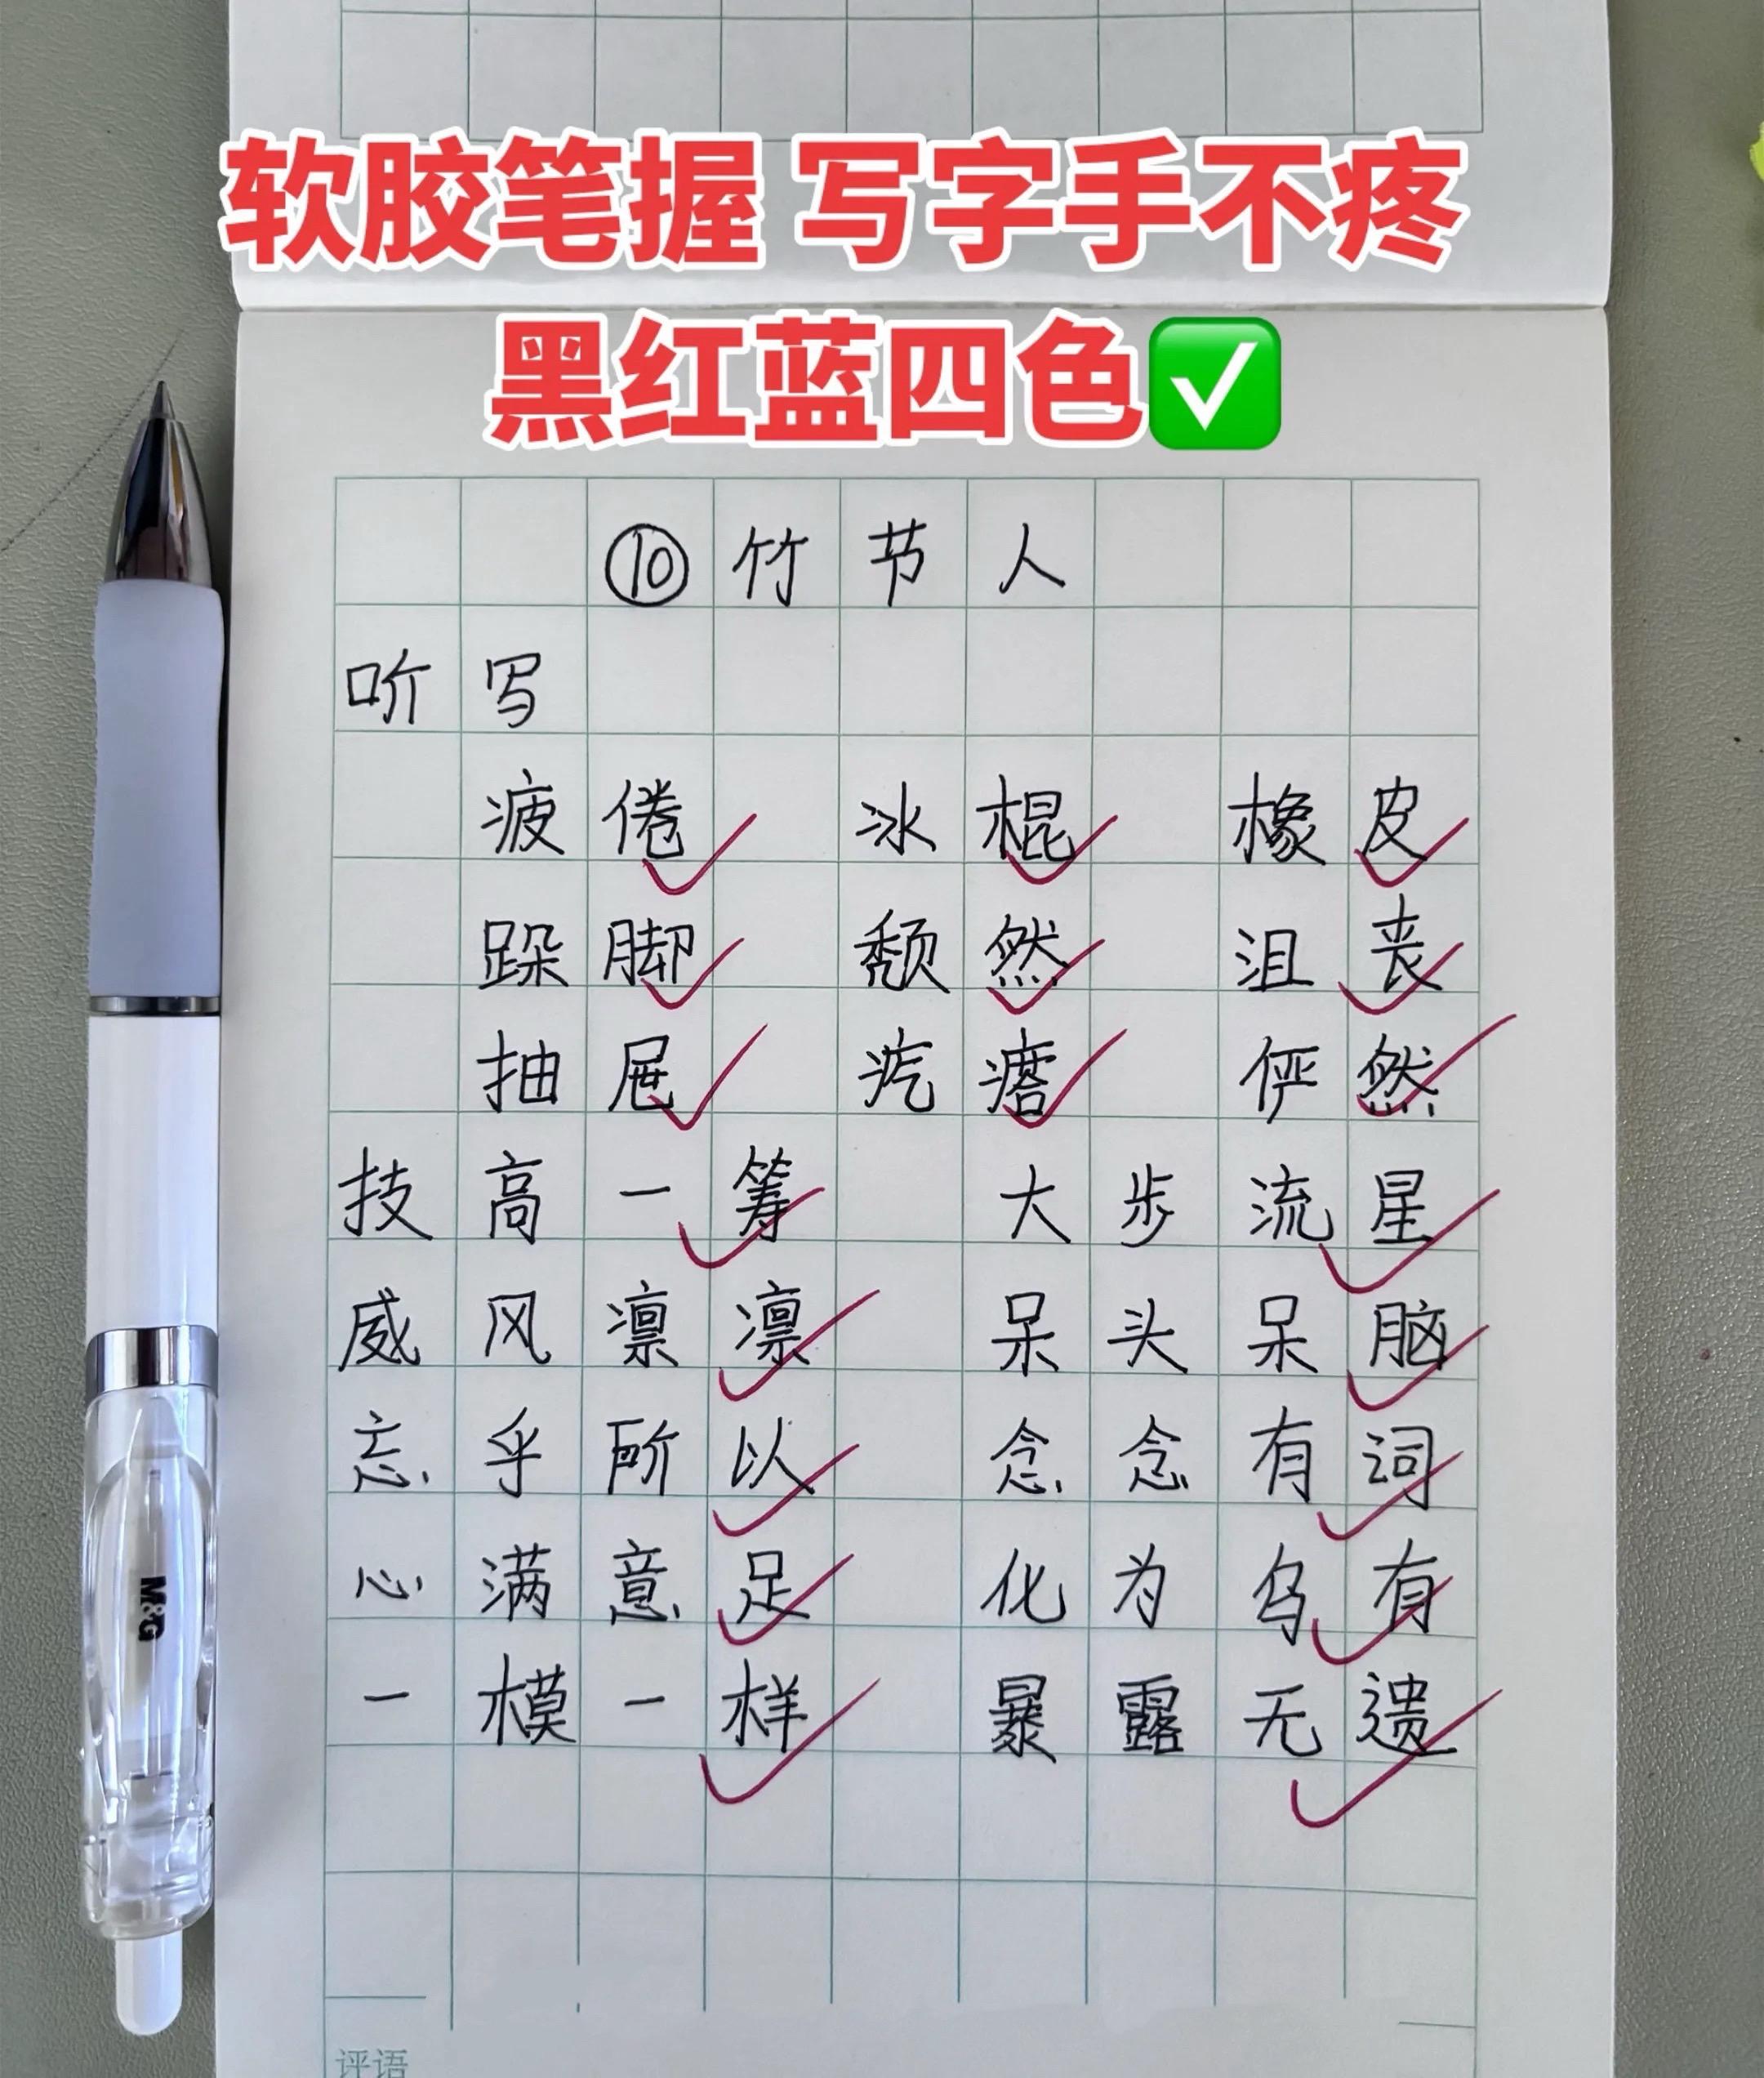 软胶笔握 写字手不疼
黑红蓝四色✅
⑩竹节人
听写
疲倦 冰棍 橡皮
跺脚 颓然 沮丧
抽屉 疙瘩 俨然
技高一筹 大步流星
威风凛凛 呆头呆脑
忘乎所以 念念有词
心满意足 化为乌有
一模一样 暴露无遗
评语
M&G